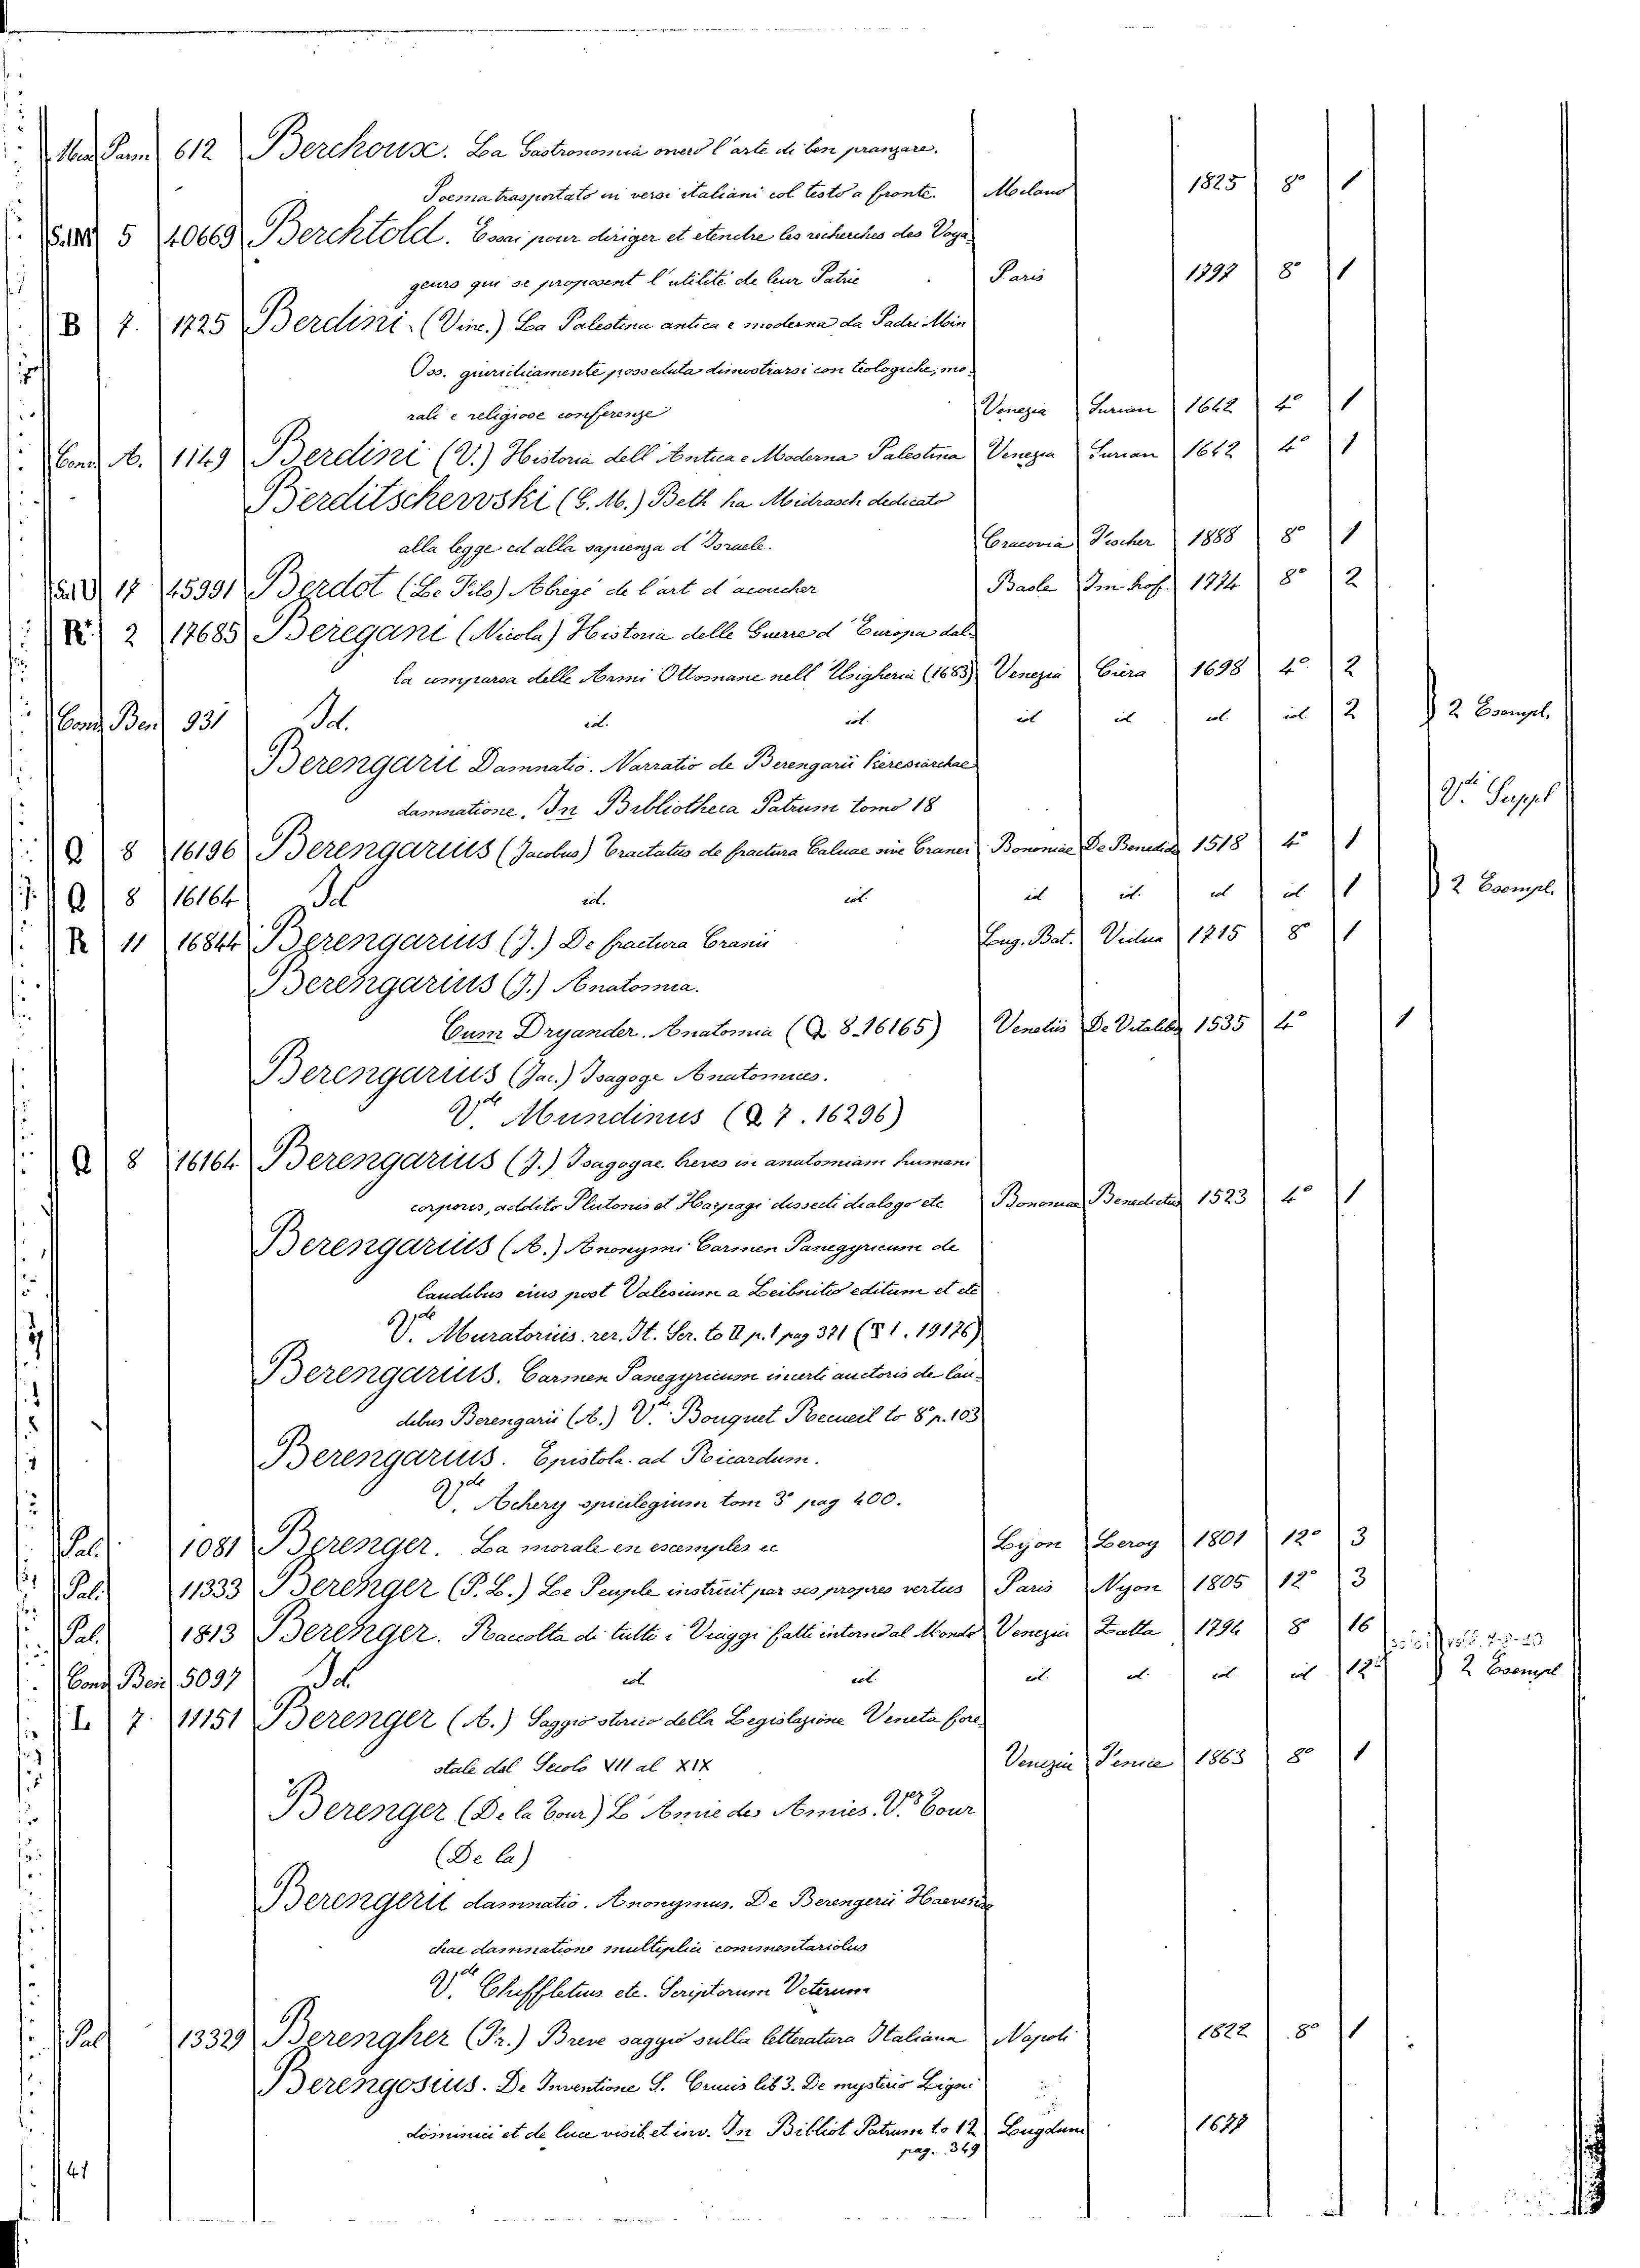 612 Berchouse. La Gastronomia overo l'arte di ben pranzare.
Poema trasportato in versi italiani col testo a fronte. Milano 1825 8° 1
5 40669 Berchtold. Essai pour diriger et etendre les recherches des Voya-
geurs qui se proposent l'utilité de leur Patrie Paris 1797 8° 1
B 7. 1725 Berdini (Vinc.) La Palestina antica e moderna da Padri Min
Oss. giuridicamente posseduta dimostrarsi con teologiche, mo-
rali e religiose conferenze Venezia Surian 1642 4° 1
Cons. A. 1149 Berdini (V.) Historia dell'Antica e Moderna Palestina Venezia Surian 1642 4° 1
Berditschewski (G. M.) Beth ha Midrasch dedicato
alla legge ed alla sapienza d'Israele. Cracovia Fischer 1888 8° 1
17 45991 Berdot (Le Fils) Abregé de l'art d'acoucher Basle Im hof. 1774 8° 2
R. 2 17685 Beregani (Nicola) Historia delle Guerre d'Europa dal-
la comparsa delle Armi Ottomane nell'Ungheria (1683) Venezia Ciera 1698 4° 2
Cons. Ben 931 Id. id. id. id id id. id. 2 2 Esempl.
Berengarii Damnatio. Narratio de Berengarii heresiarchae
damnatione. In Bibliotheca Patrum tomo 18 V.de Suppl
Q 8 16196 Berengarius (Jacobus) Tractatus de fractura Calvae sive Cranei Bononiae De Benedictis 1518 4° 1
Q 8 16164 Id id. id. id id. id id 1 2 Esempl.
R 11 16844 Berengarius (J.) De fractura Cranii Lug. Bat. 1715 8° 1
Berengarius (J.) Anatomia.
Cum Dryander. Anatomia (Q 8.16165) Venetiis De Vitalibus 1535 4° 1
Berengarius (Jac.) Isagoge Anatomices.
V.de Mundinus (Q 7. 16296)
Q 8 16164 Berengarius (J.) Isagogae breves in anatomiam humani
corporis, addito Plutonis et Harpagi dissecti dialogo etc Bononiae Benedictus 1523 4° 1
Berengarius (A.) Anonymi Carmen Panegyricum de
laudibus eius post Valesium a Leibnitio editum et etc
V.de Muratorius. rer. It. Scr. to II p. 1 pag 371 (S 1. 19176)
Berengarius. Carmen Panegyricum incerti auctoris de lau-
debus Berengarii (A.) V.de Bouquet Recueil to 8° p. 103
Berengarius. Epistola ad Ricardum.
V.de Achery spicilegium tom 3° pag 400.
Pal. 1081 Berenger. La morale en exemples ec Lyon Leroy 1801 12° 3
Pal. 11333 Berenger (P. L.) Le Peuple instruit par ses propres vertus Paris Nyon 1805 12° 3
Pal. 1813 Berenger. Raccolta di tutti i Viaggi fatti intorno al Mondo Venezia Zatta 1794 8° 16
Cons. Ben 5097 Id. id. id. id. id. id. id 12 2 Esempl
L 7. 11151 Berenger (A.) Saggio storico della Legislazione Veneta fore-
stale dal Secolo VII al XIX Venezia Fenice 1863 8° 1
Berenger (De la Tour) L'Amie des Amies. V.de Tour
(De la)
Berengerii damnatio. Anonymus. De Berengerii Haeresiar
chae damnatione multiplici commentariolus
V.de Chiffletius etc. Scriptorum Veterum
Pal 13329 Berengher (Fr.) Breve saggio sulla letteratura Italiana Napoli 1822 8° 1
Berengosius. De Inventione S. Crucis lib 3. De mysterio Ligni
dominici et de luce visib. et inv. In Bibliot Patrum to 12 Lugduni 1677
pag. 349
41